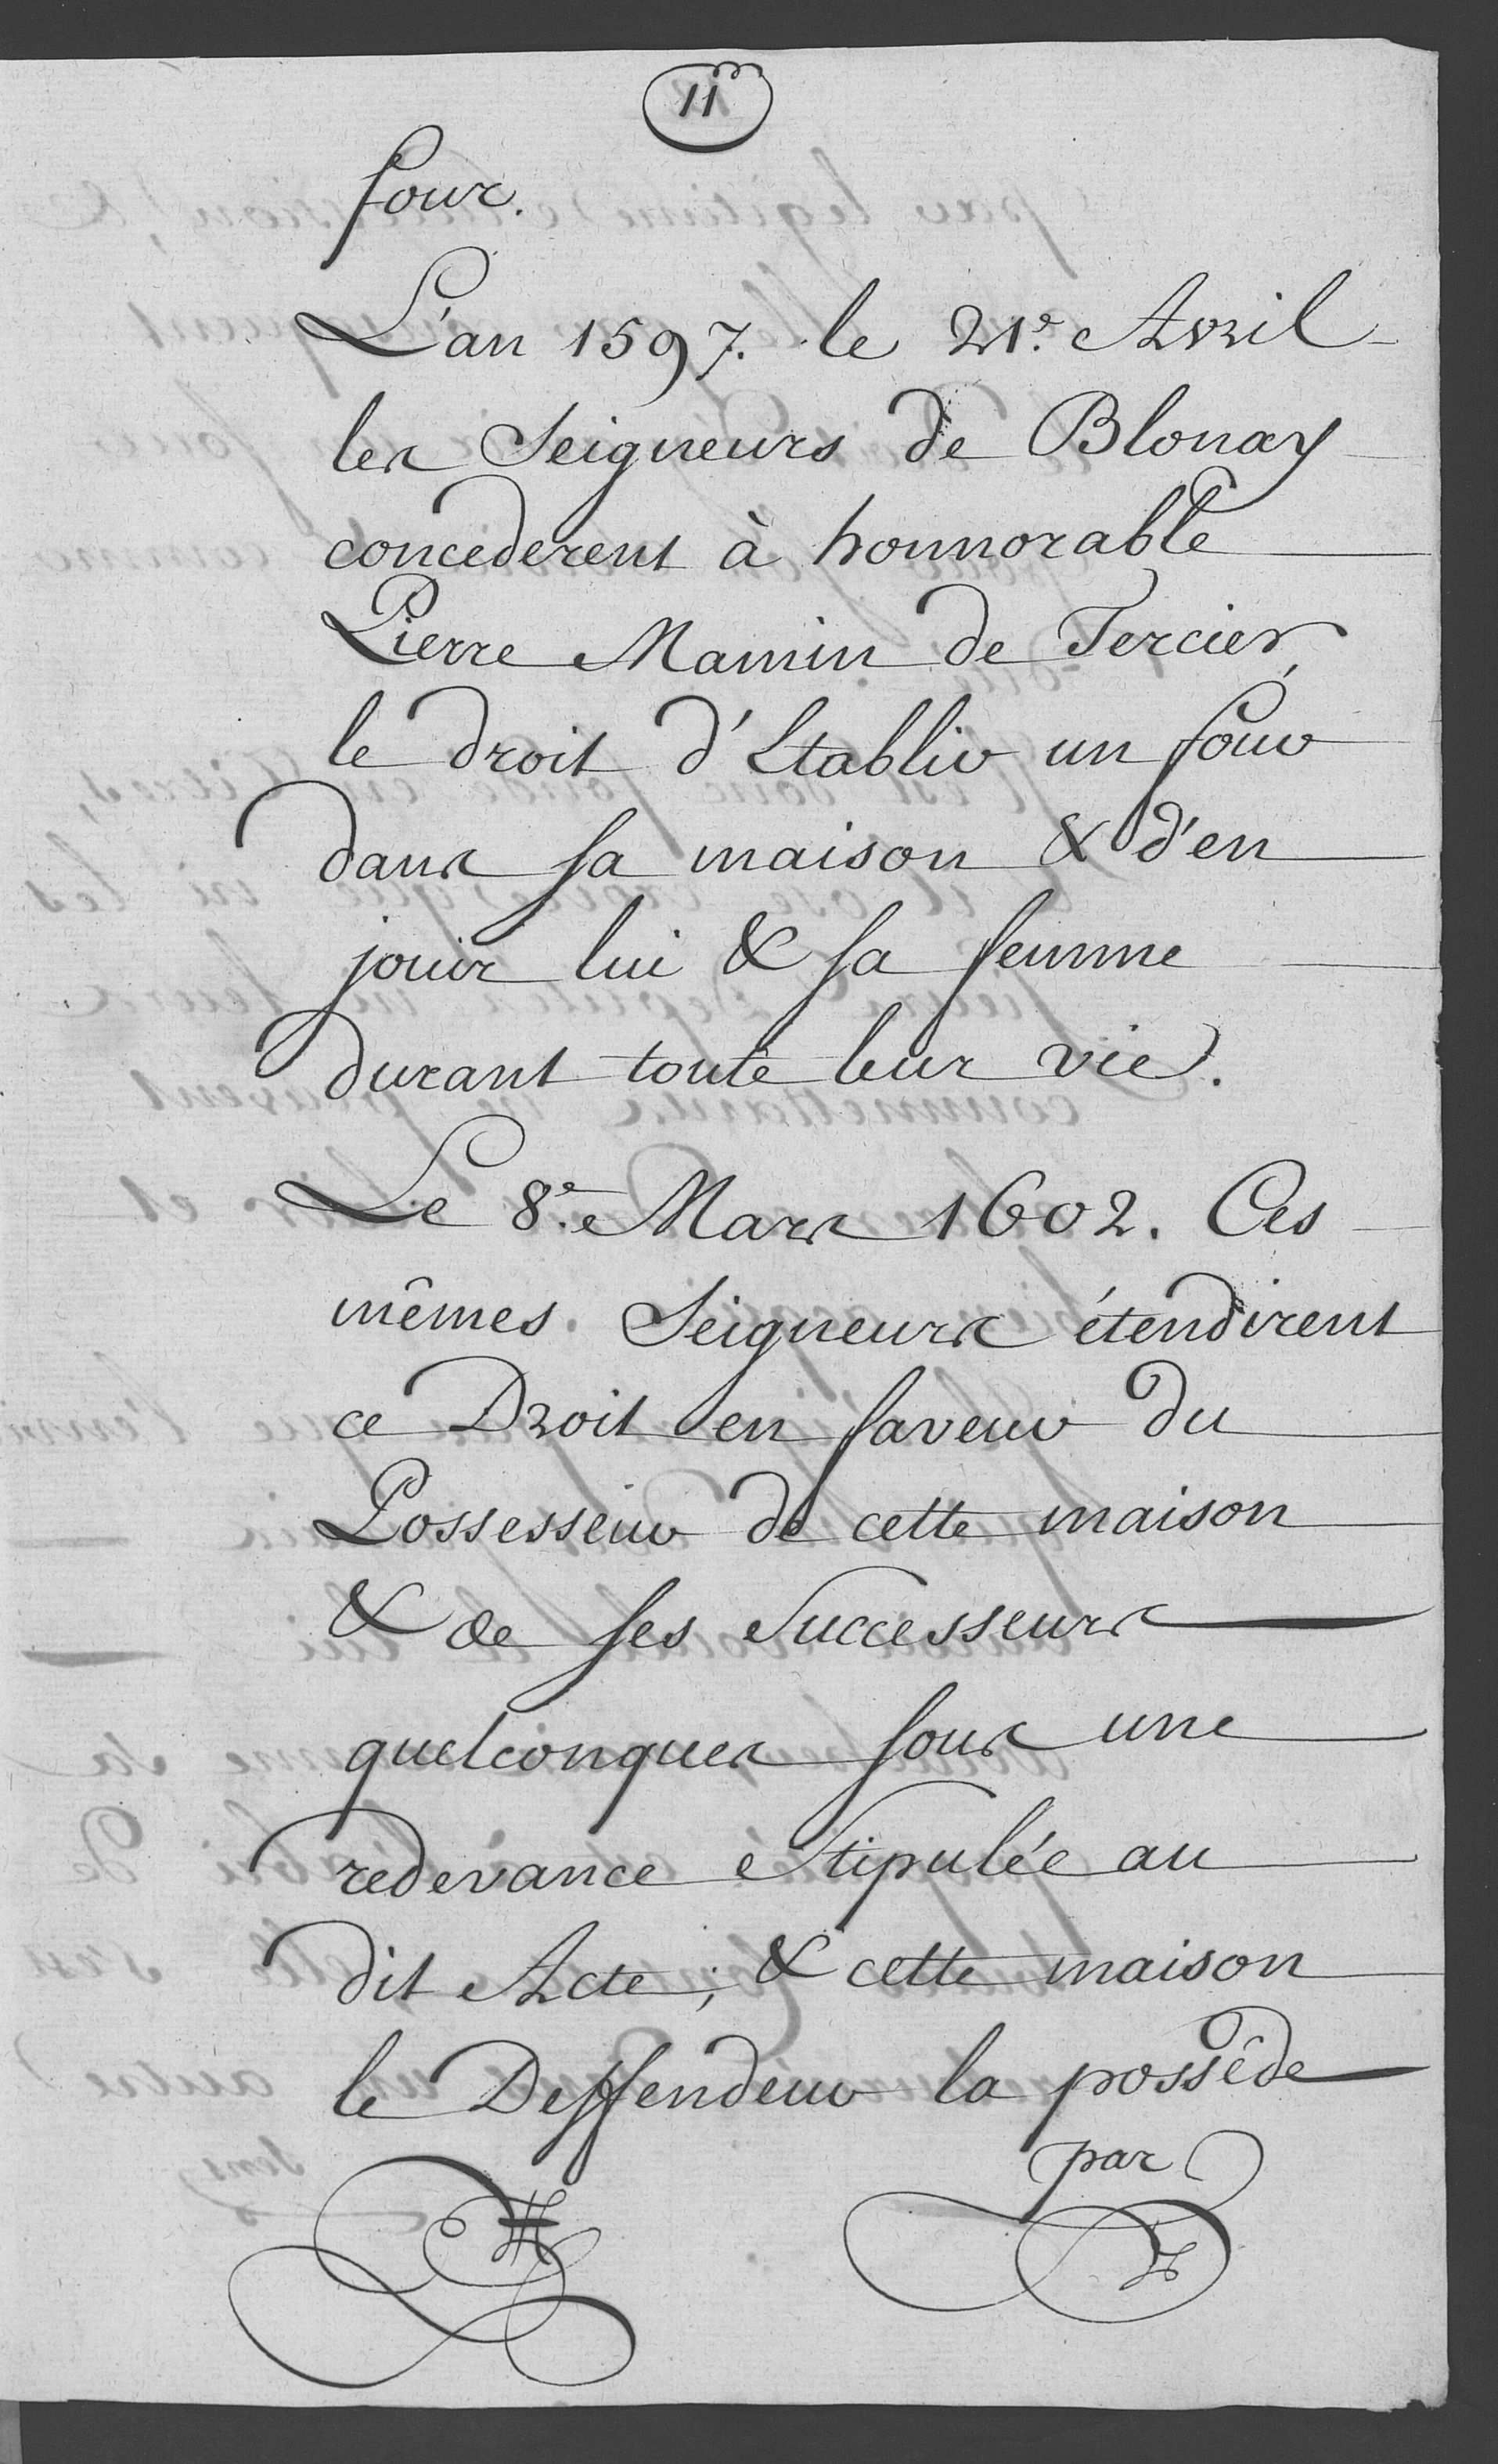 11
four.
L'an 1597. le 21e. Avril
les Seigneurs de Blonay
concederent à honnorable
Pierre Mamin de Tercier,
le droit d'Etablir un four
dans sa maison & d'en
jouir lui & sa femme
durant toute leur vie.
Le 8e. Mars 1602. Ces
mêmes Seigneurs étendirent
ce Droit en faveur du
Possesseur de cette maison
& de ses Successeurs
quelconques sous une
redevance Stipulée au
dit Acte; & cette maison
le Deffendeur la possède
par